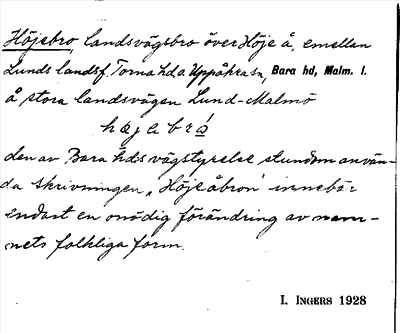 Höjebro, landsvägsbro över Höje å, emellan
Lunds landsf. Torna hd o. Uppåkra sn, Bara hd, Malm. l.
å stora landsvägen Lund-Malmö
højebró
den av Bara hds vägstyrelse stundom använ-
da skrivningen „Höjeåbron" innebär
endast en onödig förändring av nam-
nets folkliga form.
I. INGERS 1928